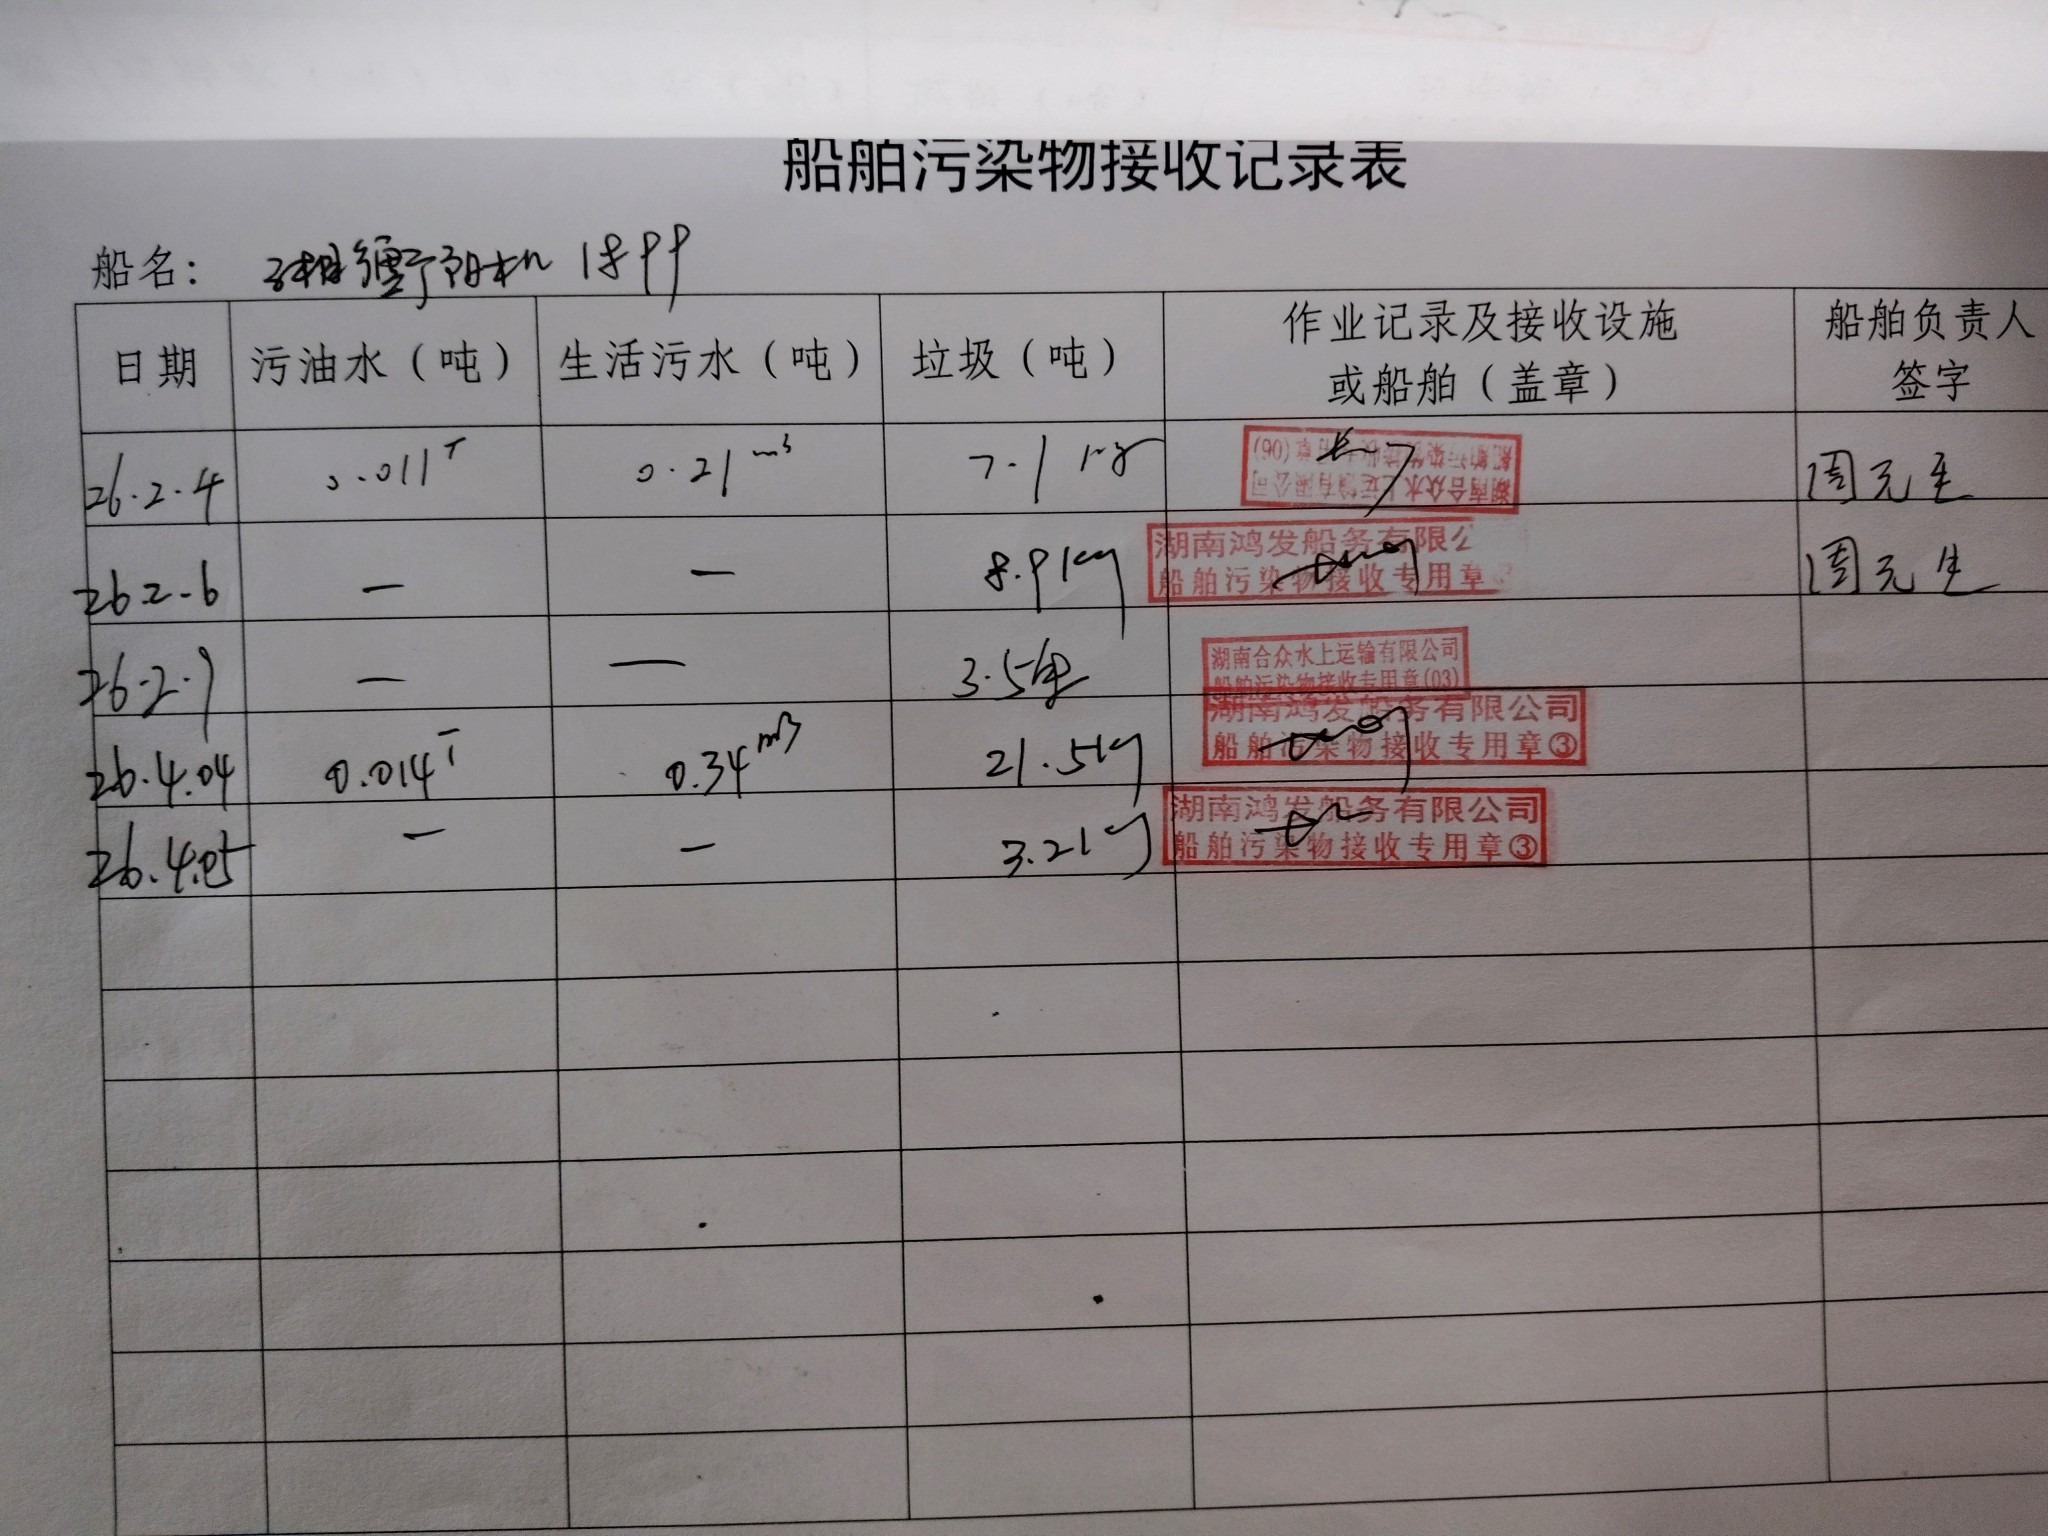 船舶污染物接收记录表
船名: 1899
日期 污油水(吨) 生活污水(吨) 垃圾(吨) 作业记录及接收设施或船舶(盖章) 船舶负责人签字
26.2.4 0.011T 0.21m³ 7.1kg 湖南合众水上运输有限公司 船舶污染物接收专用章(06) 周元生
26.2.6 — — 8.9kg 湖南鸿发船务有限公 船舶污染物接收专用章 周元生
26.2.9 — — 3.5kg 湖南合众水上运输有限公司 船舶污染物接收专用章(03)
26.4.04 0.014T 0.34m³ 21.5kg 湖南鸿发船务有限公司 船舶污染物接收专用章③
26.4.05 — — 3.2kg 湖南鸿发船务有限公司 船舶污染物接收专用章③